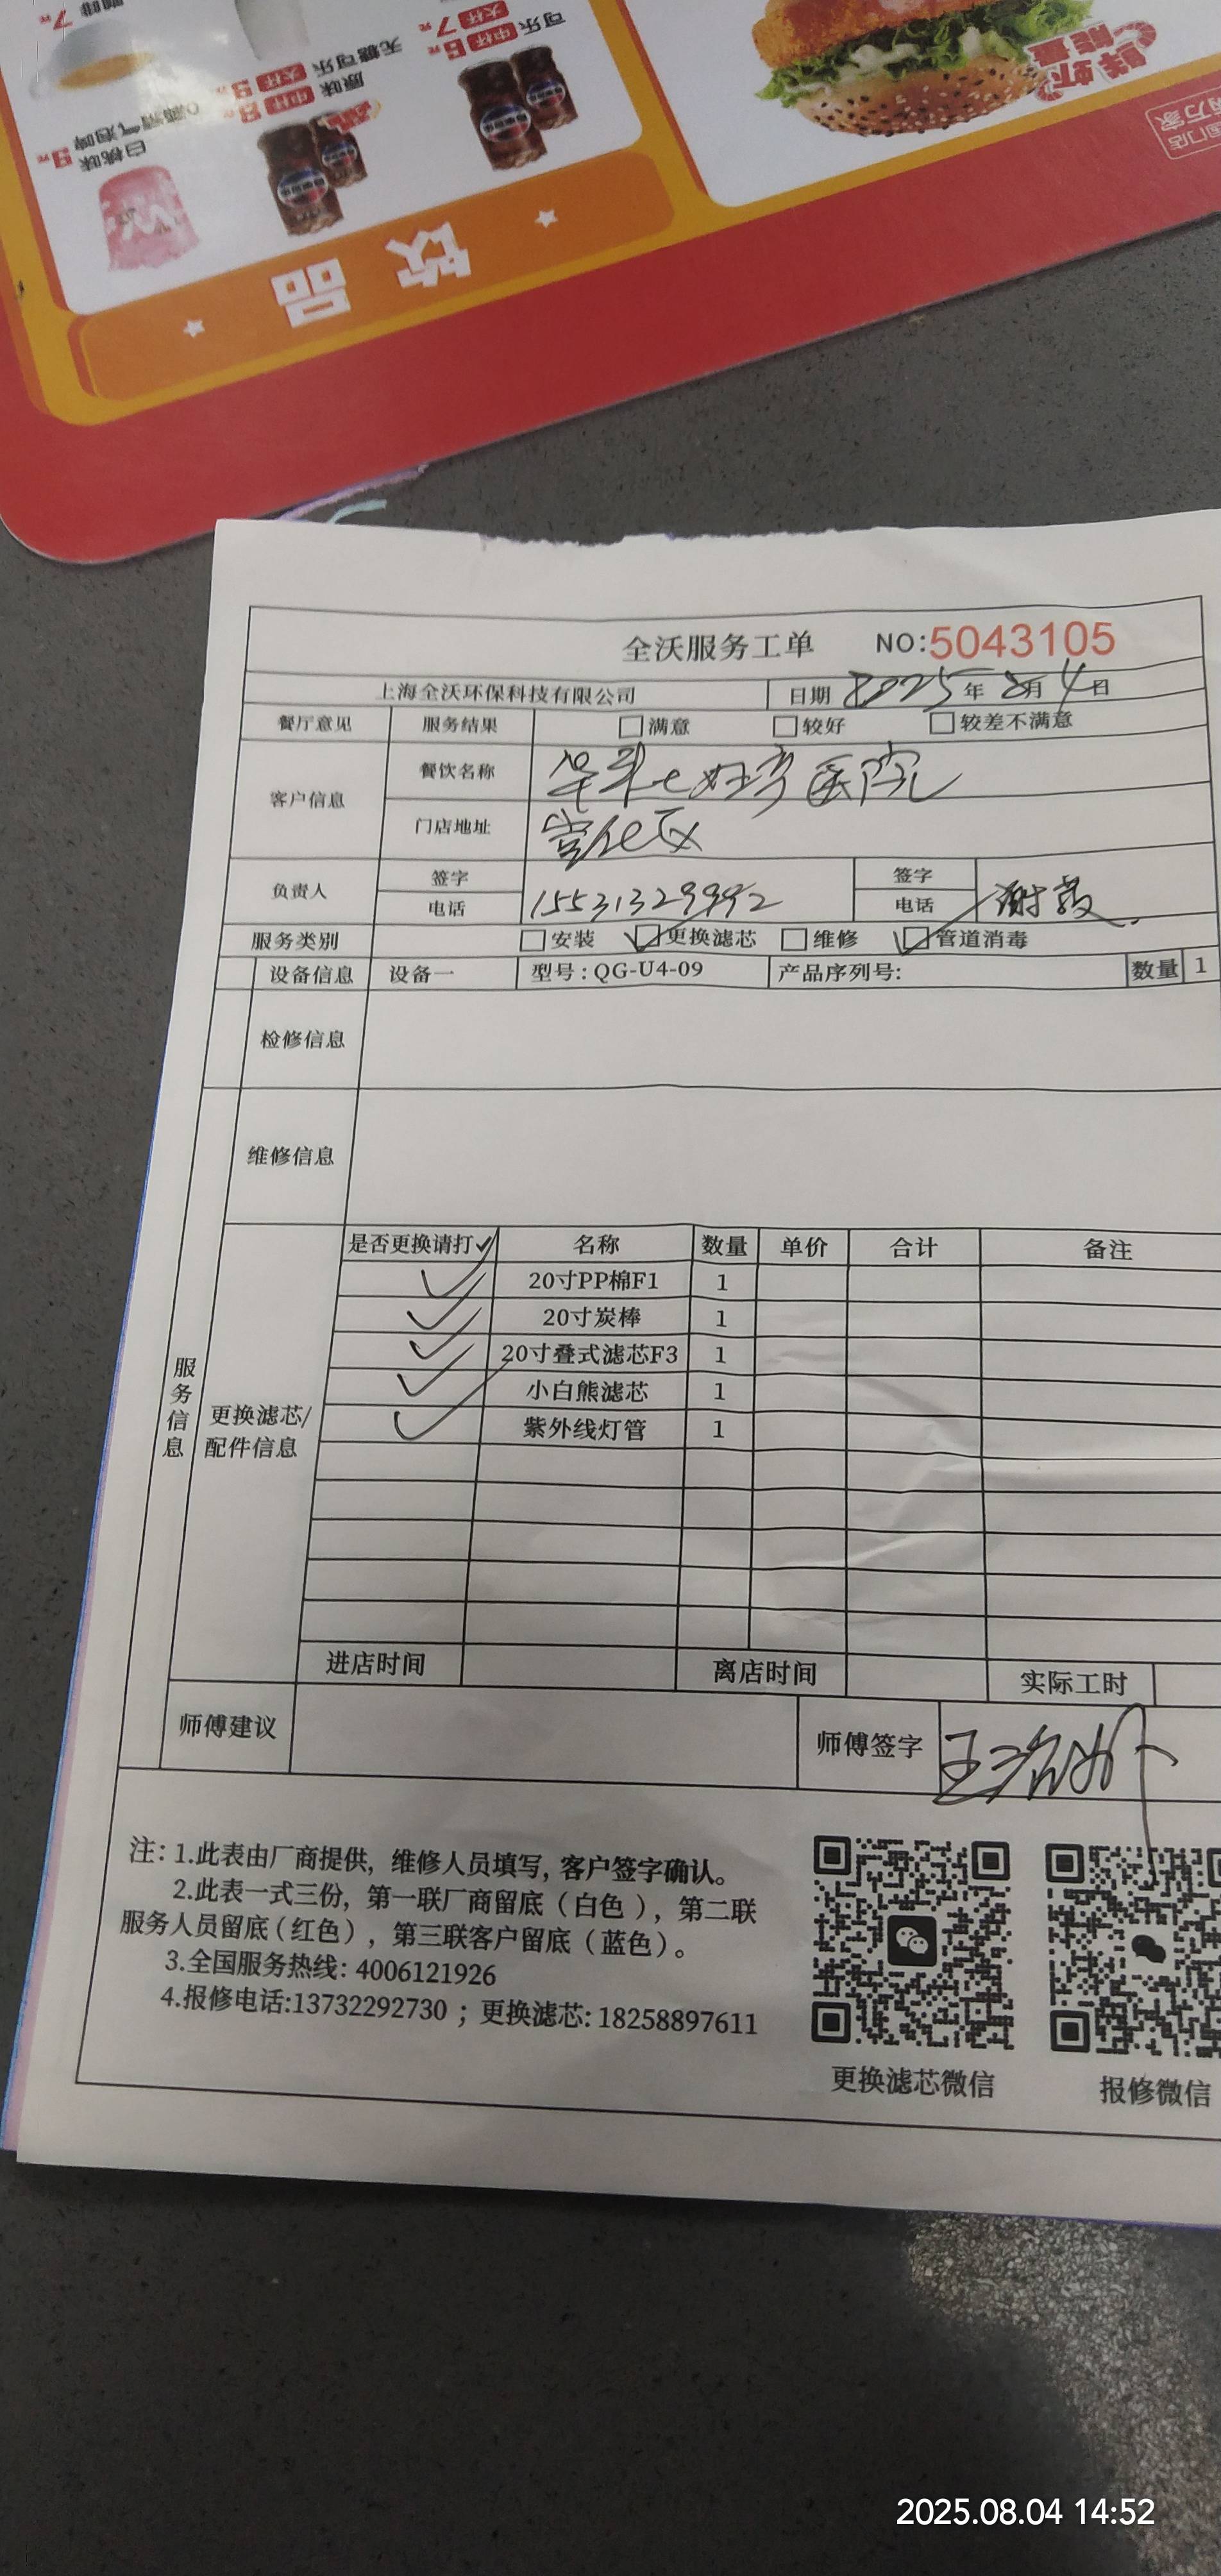 饮品
可乐 中杯 5元 大杯 7元
原味 中杯
无糖可乐 大杯
白桃味
鲜虾
能量
全沃服务工单 NO:5043105
上海全沃环保科技有限公司 日期 2025年 8月 4日
餐厅意见 服务结果 □满意 □较好 □较差不满意
客户信息 餐饮名称 医院
门店地址 宣化区
负责人 签字 签字
电话 15531329992 电话 谢霞
服务类别 □安装 ☑更换滤芯 □维修 ☑管道消毒
设备信息 设备一 型号:QG-U4-09 产品序列号: 数量 1
检修信息
维修信息
服务信息
更换滤芯/配件信息
是否更换请打✓ 名称 数量 单价 合计 备注
✓ 20寸PP棉F1 1
✓ 20寸炭棒 1
✓ 20寸叠式滤芯F3 1
✓ 小白熊滤芯 1
✓ 紫外线灯管 1
进店时间 离店时间 实际工时
师傅建议 师傅签字 王
注: 1.此表由厂商提供, 维修人员填写, 客户签字确认。
2.此表一式三份, 第一联厂商留底(白色), 第二联
服务人员留底(红色), 第三联客户留底(蓝色)。
3.全国服务热线: 4006121926
4.报修电话:13732292730 ; 更换滤芯: 18258897611
更换滤芯微信 报修微信
2025.08.04 14:52